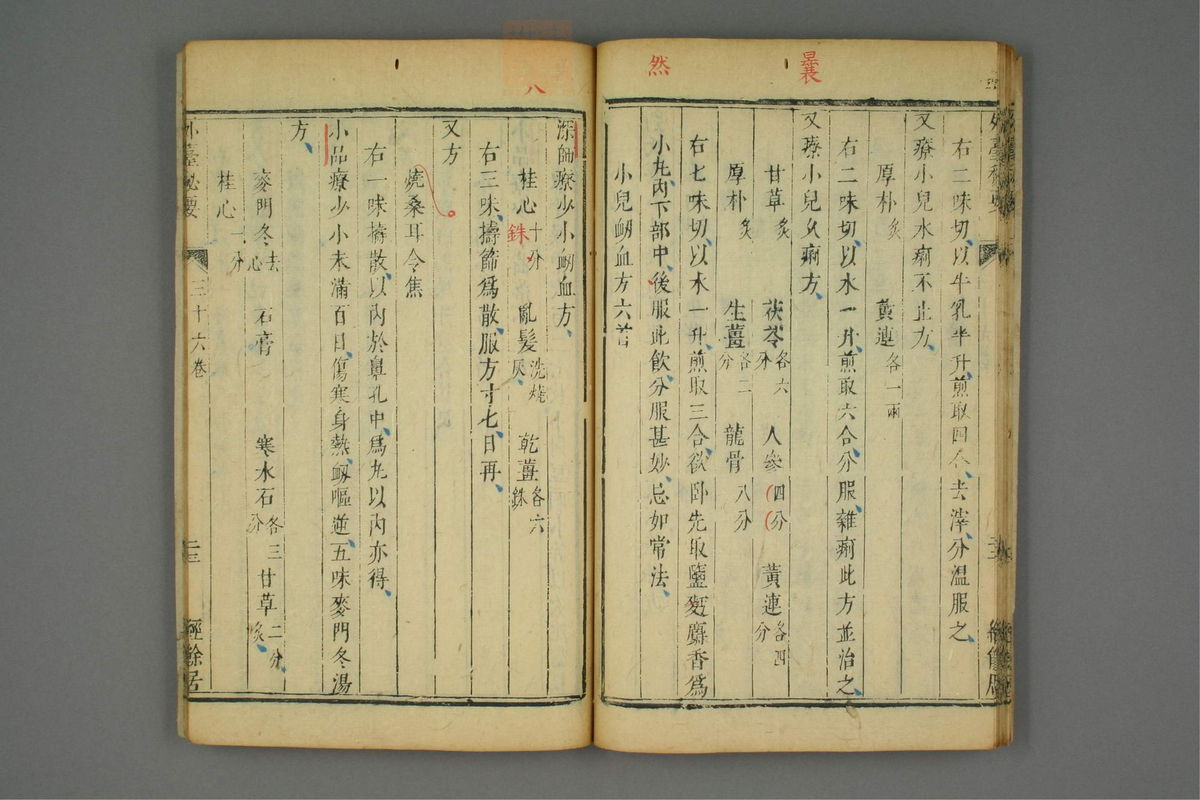 然
曩
右二味切以牛乳半升煎取四合去滓分溫服之
又療小兒水痢不止方
厚朴炙 黃連各一兩
右二味切以水一升煎取六合分服雜痢此方並治之
又療小兒久痢方
甘草炙 茯苓各六分 人參四分 黃連各四分
厚朴炙 生薑各二分 龍骨八分
右七味切以水一升煎取三合欲臥先取鹽麪麝香爲
小丸內下部中後服此飲分服甚妙忌如常法
小兒衂血方六首
八
深師療少小衂血方
桂心十分 銖 亂髮洗燒灰 乾薑各六銖
右三味擣篩爲散服方寸七日再
又方
燒桑耳令焦
右一味擣散以內於鼻孔中爲丸以內亦得
小品療少小未滿百日傷寒身熱衂嘔逆五味麥門冬湯
方
麥門冬去心 石膏 寒水石各三分 甘草二分炙
桂心一分
外臺祕要 三十六卷 二三 經餘居